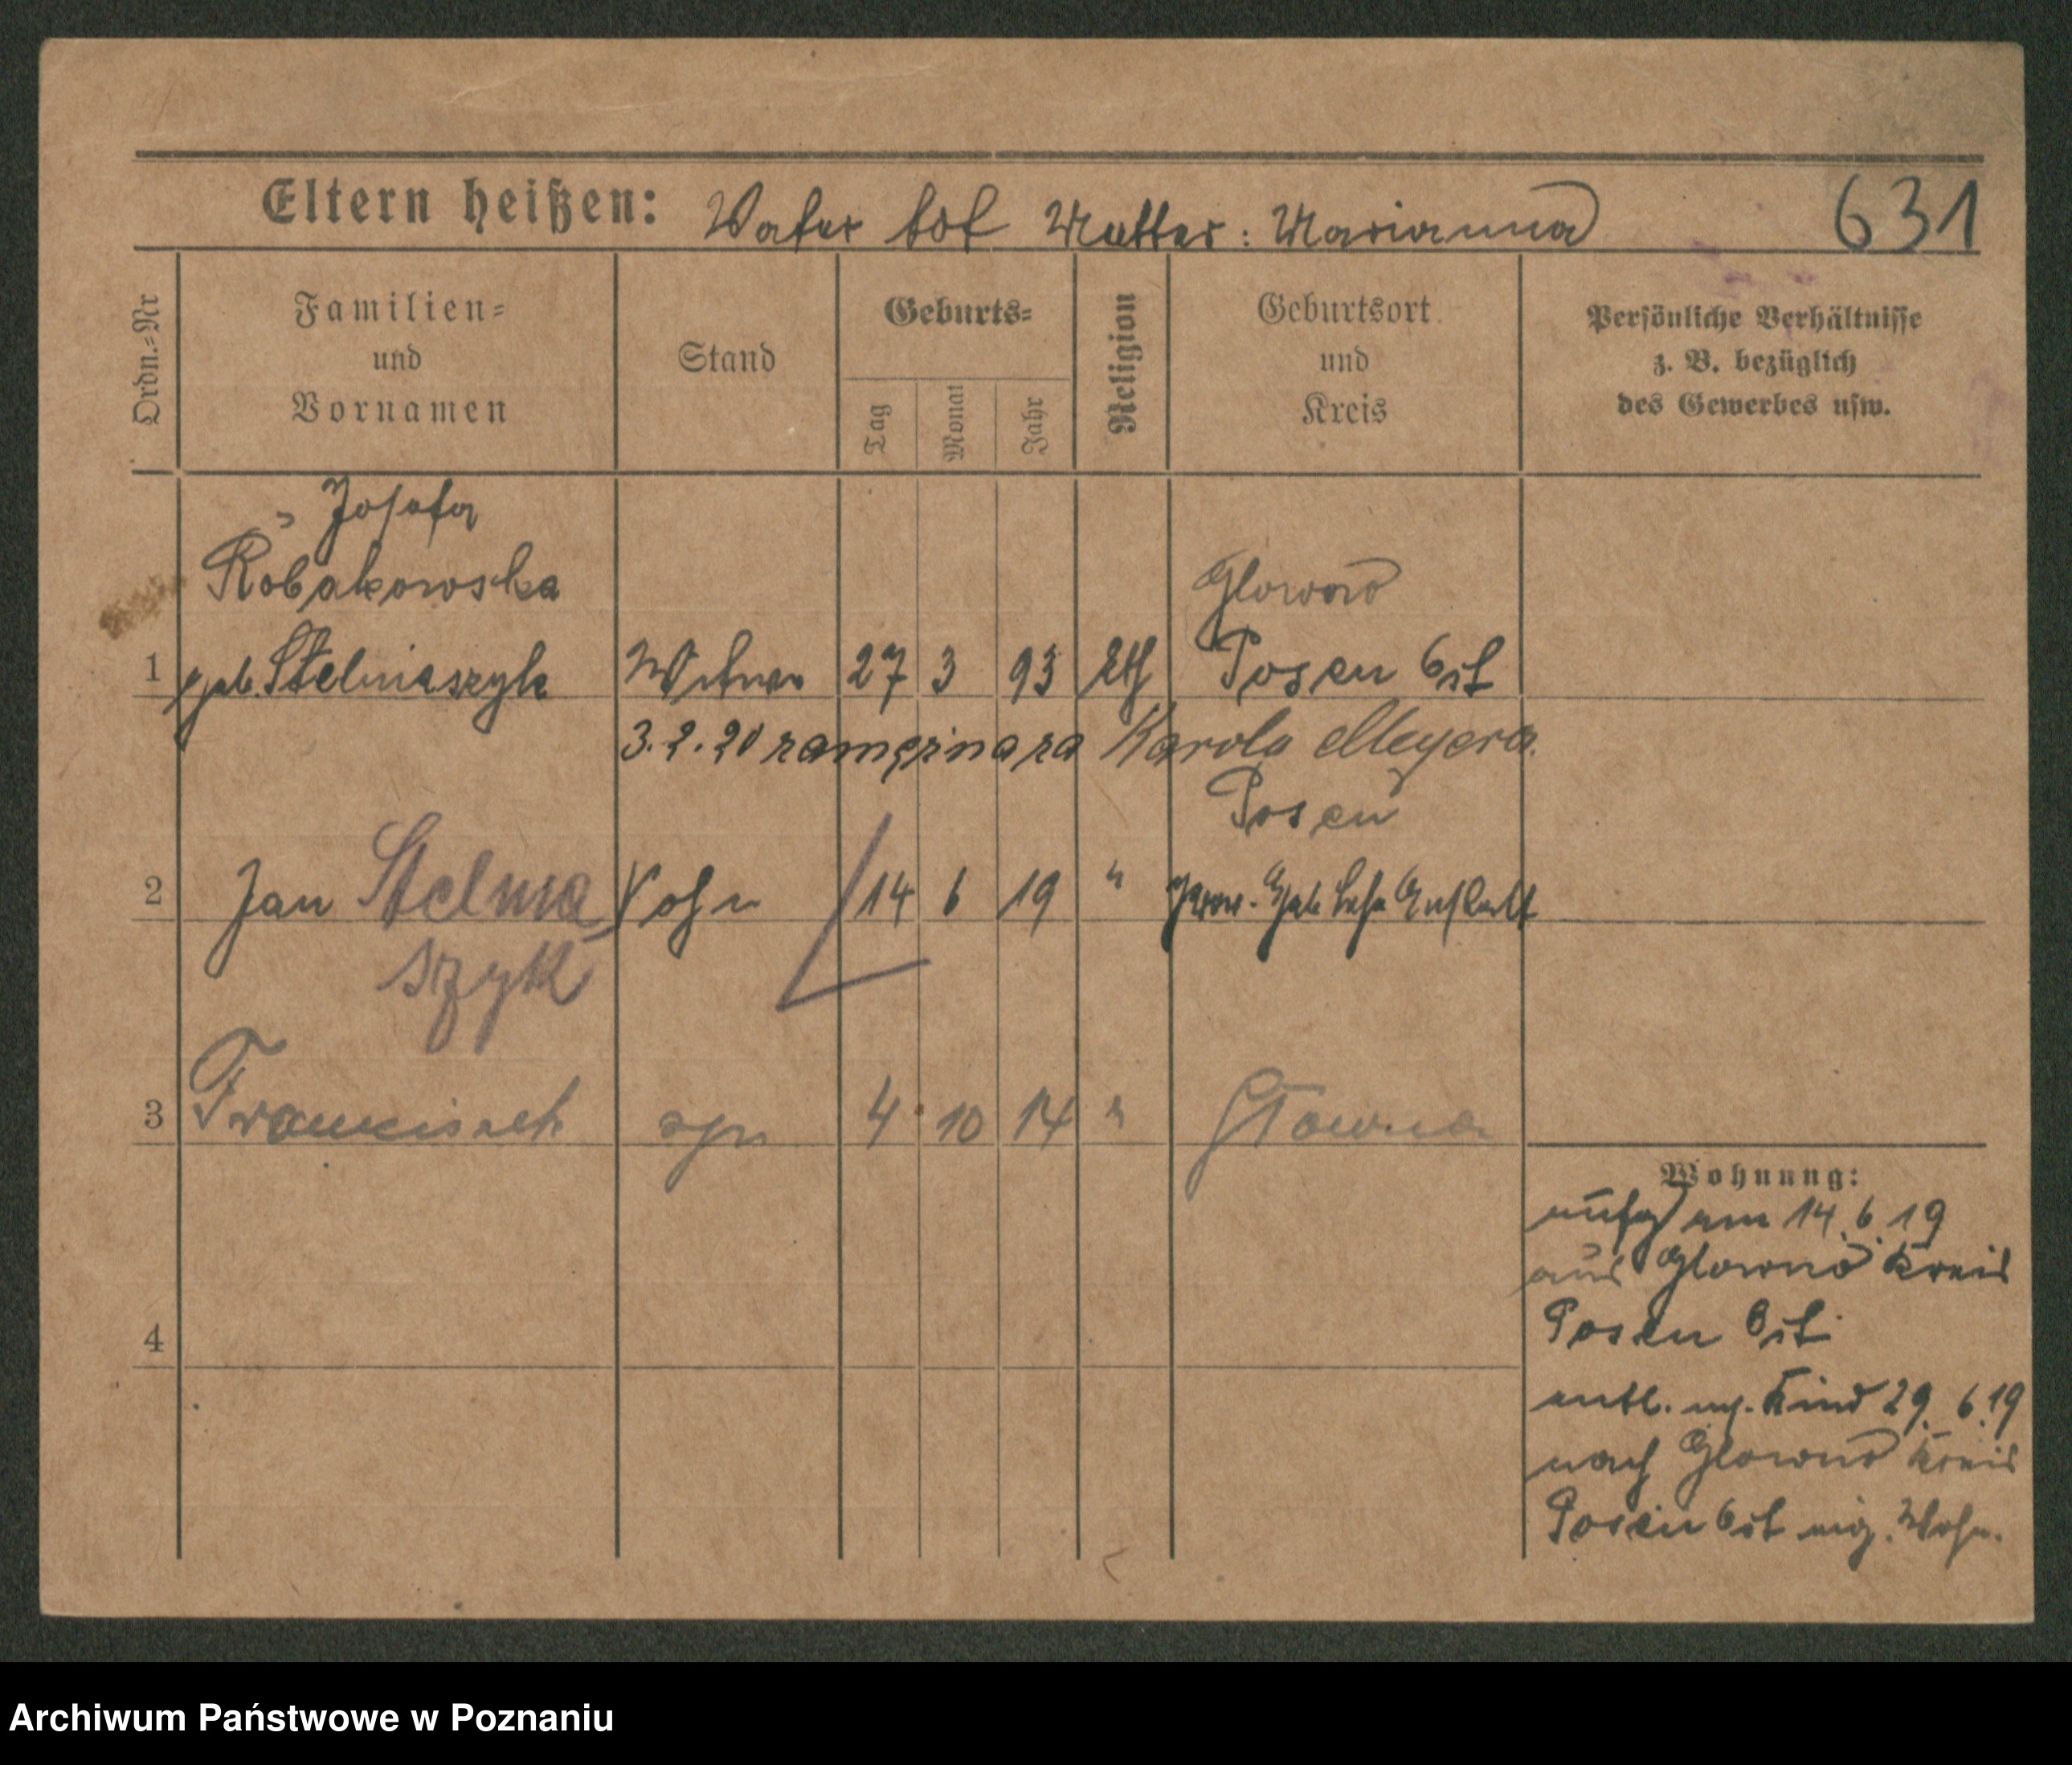 Eltern heißen: Vater tot Mutter: Marianna 631
Ordn.=Nr
Familien=
und
Vornamen
Stand
Geburts=
Tag
Monat
Jahr
Religion
Geburtsort
und
Kreis
Persönliche Verhältnisse
z. B. bezüglich
des Gewerbes usw.
Josefa
Robakowska Glowno
1 geb. Stelmaszyk Witwe 27 3 93 kth Posen Ost
3.2.20 zamężna za Karola Meyera.
Posen
2 Jan Stelma Sohn 14 6 19 " Prov. Heb Lehr Anstalt
szyk
3 Franciszek syn 4 10 14 " Głowna
4
Wohnung:
aufg am 14.6.19
aus Glowno Kreis
Posen Ost
entl. m. Kind 29.6.19
nach Glowno Kreis
Posen Ost eig. Wohn.
Archiwum Państwowe w Poznaniu